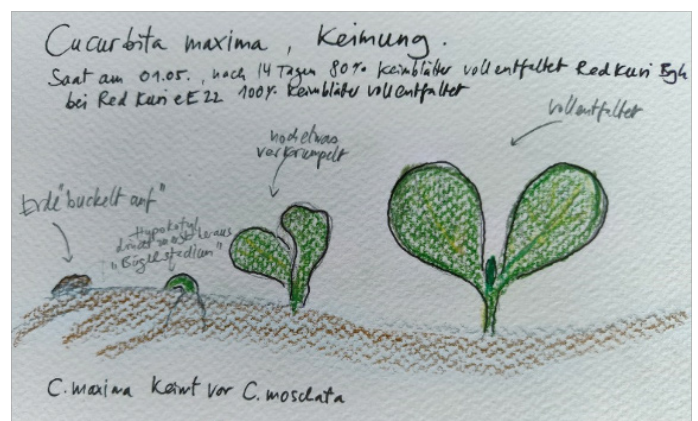 Cucurbita maxima, Keimung.
Saat am 01.05., nach 14 Tagen 80% Keimblätter voll entfaltet Red Kuri
bei Red Kuri eE22 100% Keimblätter voll entfaltet
voll entfaltet
noch etwas
verkrumpelt
Erde "buckelt auf"
Hypokotyl
zuerst heraus
"Bügelstadium"
C. maxima keimt vor C. moschata